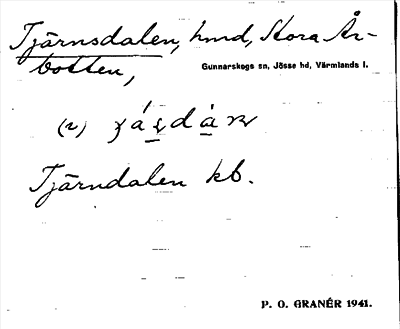 Tjärnsdalen, hmd, Stora År-
botten,
Gunnarskogs sn, Jösse hd, Värmlands l.
(2)
Tjärndalen kb.
P. O. GRANÉR 1941.